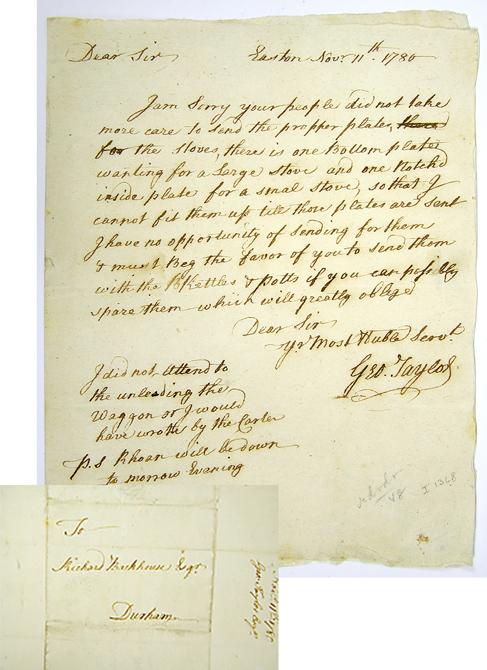 Dear Sir
Easton Novr. 11th. 1780
I am Sorry your people did not take
more care to Send the propper plates,
for the stoves, there is one Bottom plate
wanting for a Large stove and one Notch'd
inside plate for a smal stove, so that I
cannot fit them up till those plates are Sent
I have no opportunity of sending for them
& must Beg the favor of you to send them
with the Kettles & Potts if you can possibly
spare them which will greatly oblige
Dear Sir
Yr. Most Huble Servt.
Geo. Taylor
I did not attend to
the unloading the
Waggon or I would
have wrote by the Carter
P.S Rhoan will be down
to morrow Evening
I 1368
To
Richard Backhouse Esqr.
Durham